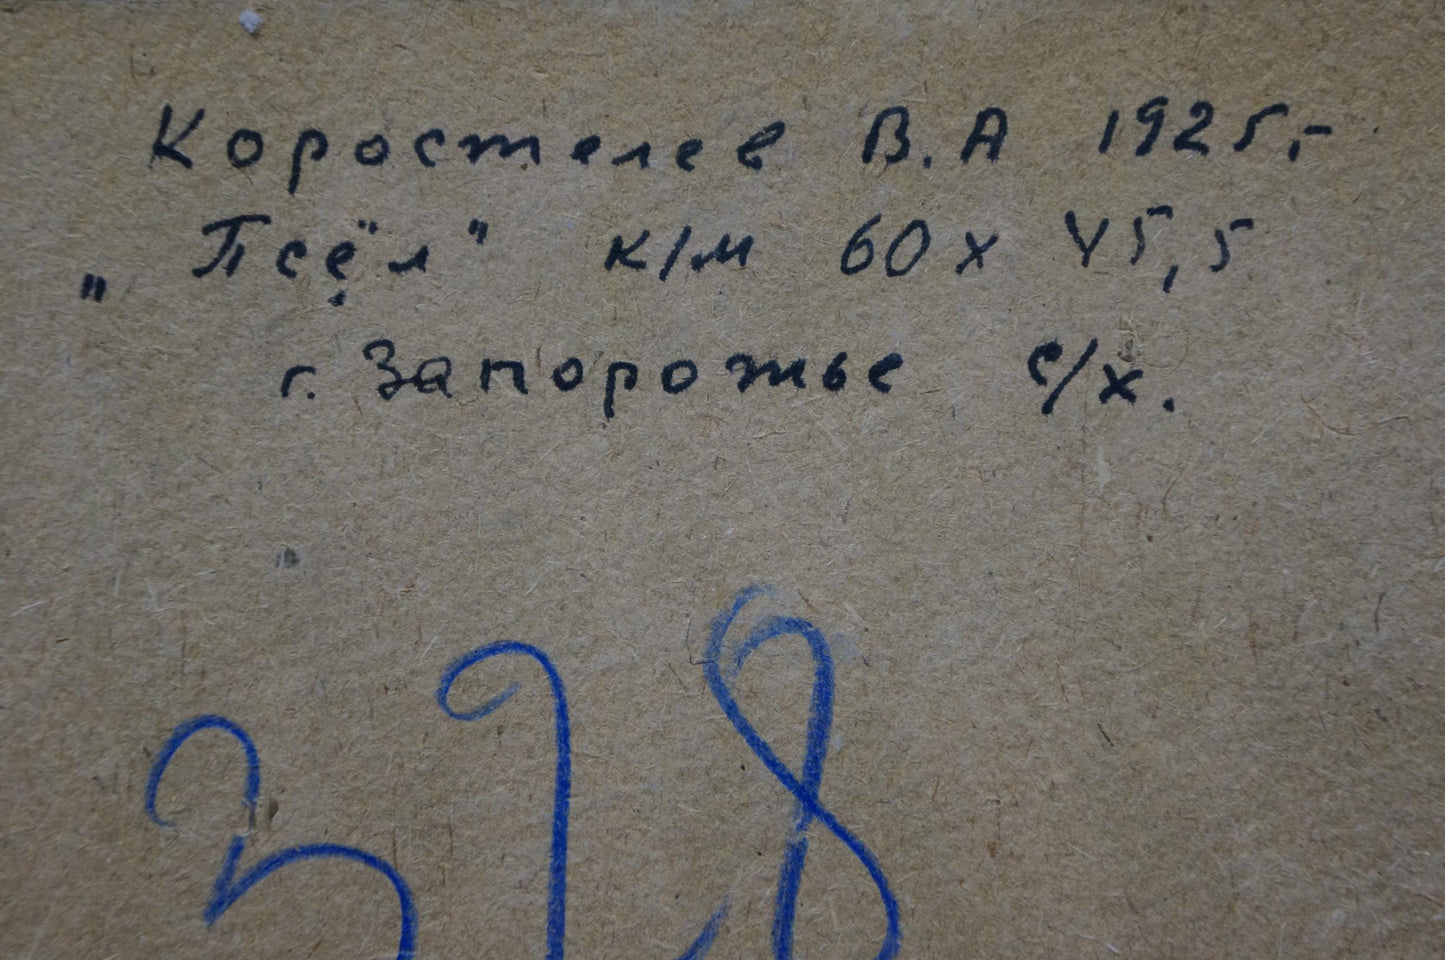 Коростелев В.А 1925г.-
„Псёл" к/м 60 х 45,5
г. Запорожье с/х.